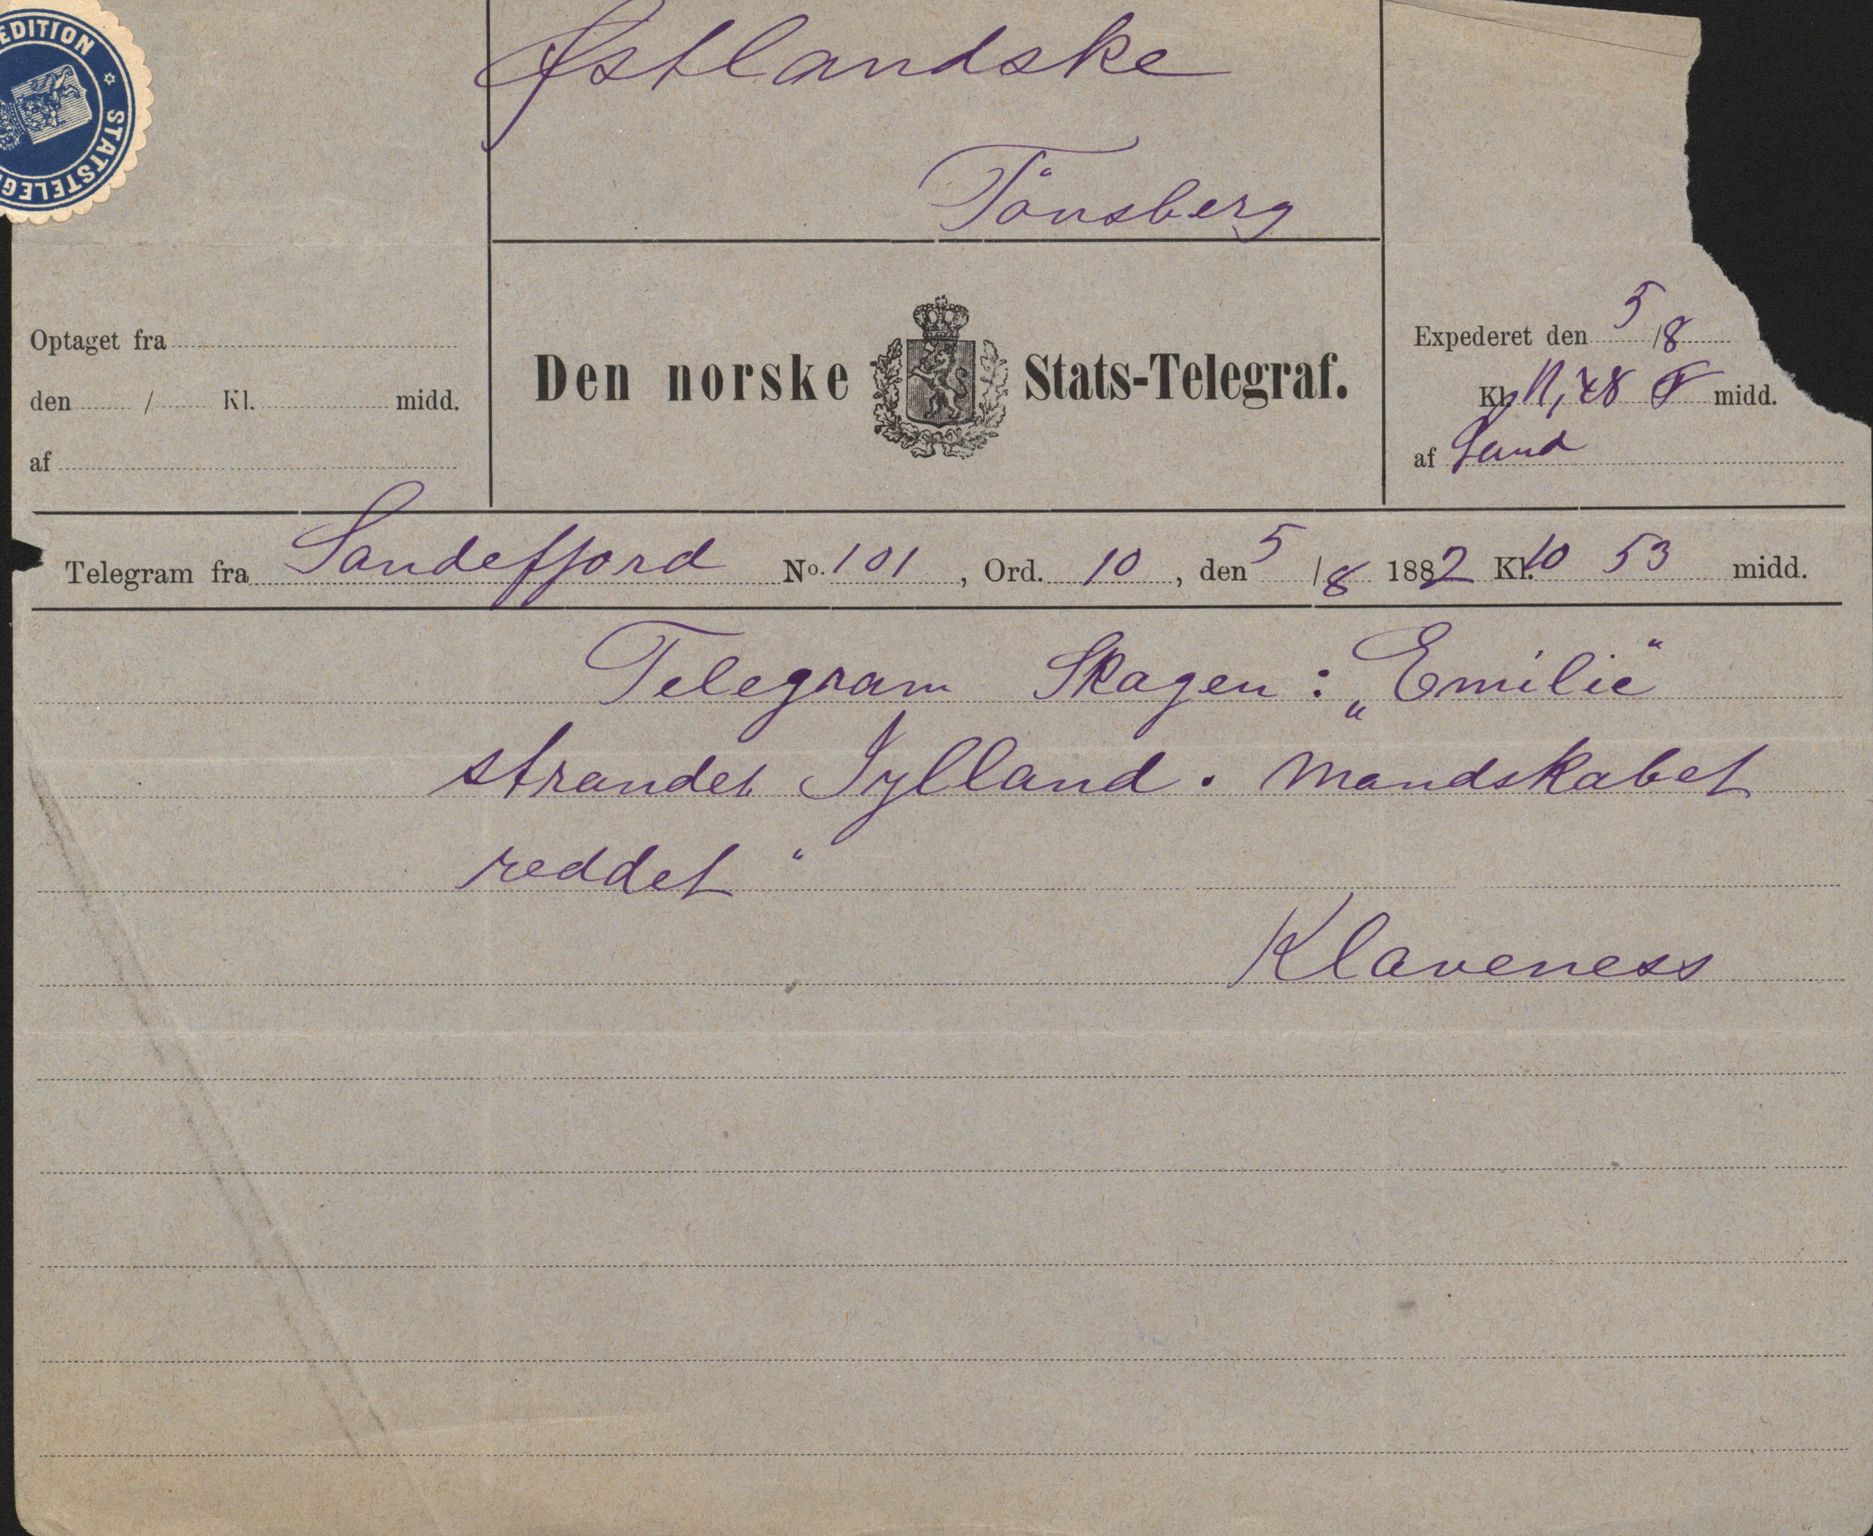 EDITION
STATSTELEG
Østlandske
Tönsberg
Optaget fra
den / Kl. midd.
af
Den norske Stats-Telegraf.
Expederet den 5/8
Kl. 11,48 F midd.
af Lund
Telegram fra Sandefjord No. 101, Ord. 10, den 5/8 1882 Kl. 10 53 midd.
Telegram Skagen: „Emilie“
strandet Jylland. Mandskabet
reddet“
Klaveness